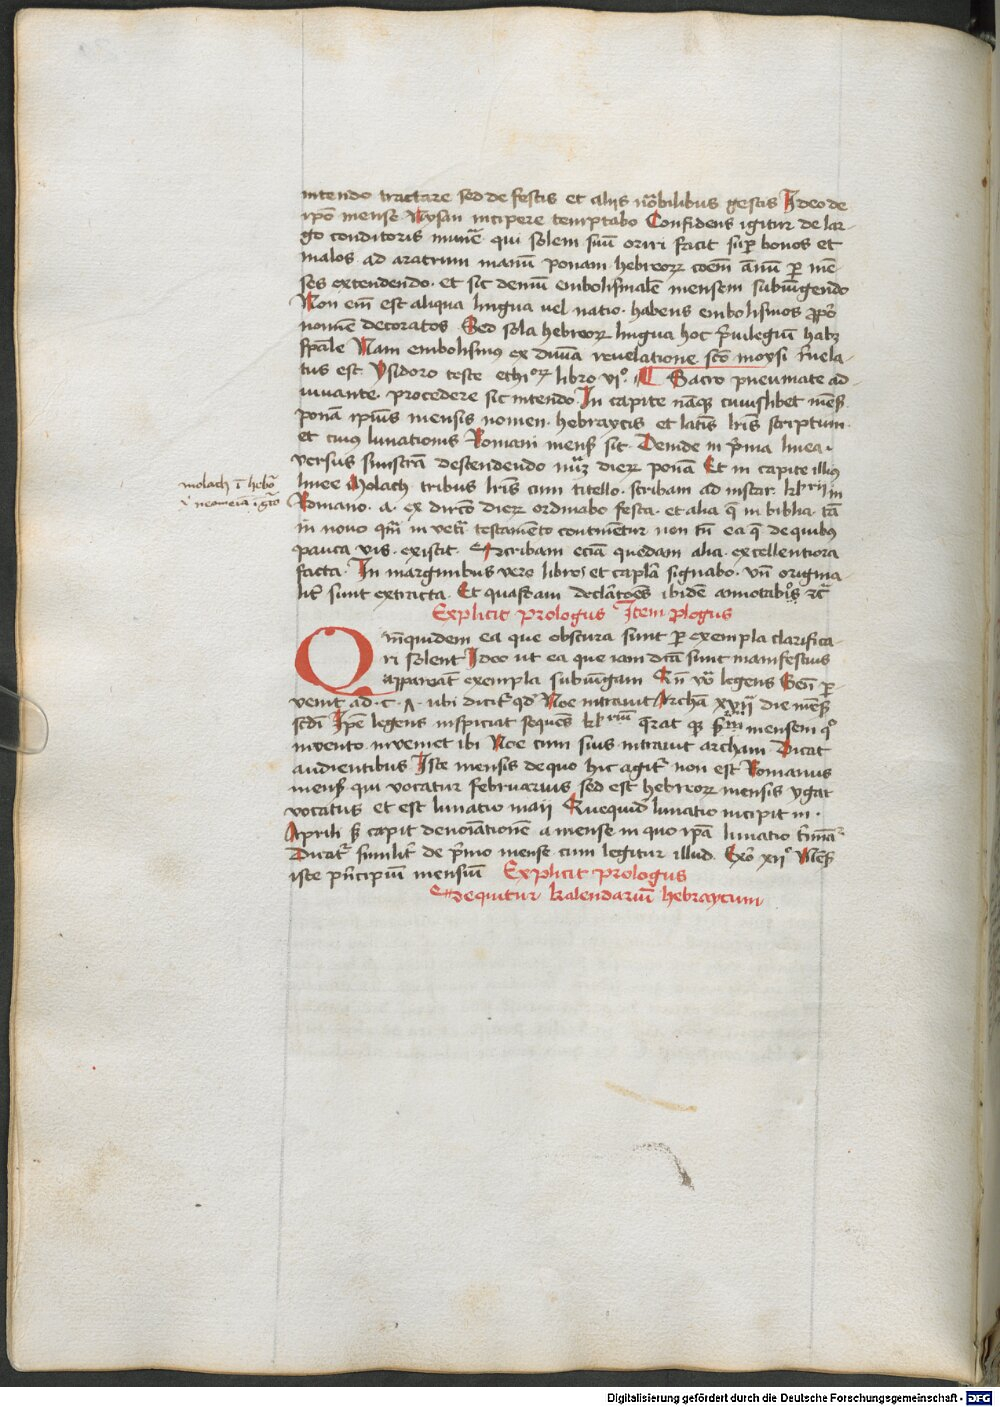 intendo tractare sed de festis et aliis nōbilibus gestis Ideo de
ip̄o mense Nysan incipere temptabo Confidens igitur de lar-
go conditoris munē qui solem suū oriri facit sup̄ bonos et
malos ad aratrum manū ponam hebreoꝝ coēm ānū ꝑ mē-
ses extendendo et sic demū embolismalē mensem subiūgendo
Non em̄ est aliqua lingua uel natio habens embolismos ꝓpō
nomē decoratos Sed sola hebreoꝝ lingua hoc p̄uilegiū habꝫ
spāle Nam embolismꝰ ex diuīa reuelatione scō moysi r̄uela-
tus est Ysidoro teste ethioꝝ libro vi° Sacro pneumate ad-
iuuante procedere sic intendo In capite nāqꝫ cuiuslibet mēs̄
ponā ipiūs mensis nomen hebraycis et latīs lrīs scriptum
et cuiꝰ lunationis Romani mens̄ sit Deinde in p̄ma linea
versus sinistrā descendendo nūꝝ dierꝝ ponā Et in capite illiꝰ
linee Molach tribus lrīs cum titello scribam ad instar klrii in
Romano a ex dirēo dierꝝ ordinabo festa et alia q̄ in biblia tā
in nouo qm̄ in vetī testamēto continētur non tn̄ ea q̄ de quibꝰ
pauca vis existit Scribam eciā quedam alia excellentiora
facta In marginibus vero libros et capl̄a signabo vn̄ origina-
lit̄ sunt extracta Et quasdam declātōes ibidē annotabim̄ꝰ ꝛc̄
molach ī hebrā
neomenia ī grō
Explicit prologus Item ꝓlogus
Qm̄quidem ea que obscura sunt ꝑ exempla clarifica-
ri solent Ideo ut ea que iam dcā sunt manifestius
appareāt exempla subiūgam Cū vō legens Gen̄ ꝑ-
venit ad c ʌ ubi dicit̄ qd̄ Noe intrauit Archā xvii die mēs̄
scd̄i Ip̄e legens inspiciat seques̄ klrium q̄rat qꝫ sm̄ mensem qo
inuento inueniet ibi Noe cum suis intrauit archam Dicat
audientibus Iste mensis de quo hic agit̄ non est Romanus
mens̄ qui vocatur februarius sed est hebreoꝝ mensis ygar
vocatus et est lunatio maii Quequid lunatio incipit in
Aprili s̄ capit denoīationē a mense in quo ip̄a lunatio t̄minat̄
Dicat̄ similit̄ de p̄mo mense cum legitur illud Exō xii° Mēs̄
iste p̄ncipiū mensiū Explicit prologus
Sequitur kalendariū hebraycum
Digitalisierung gefördert durch die Deutsche Forschungsgemeinschaft - DFG